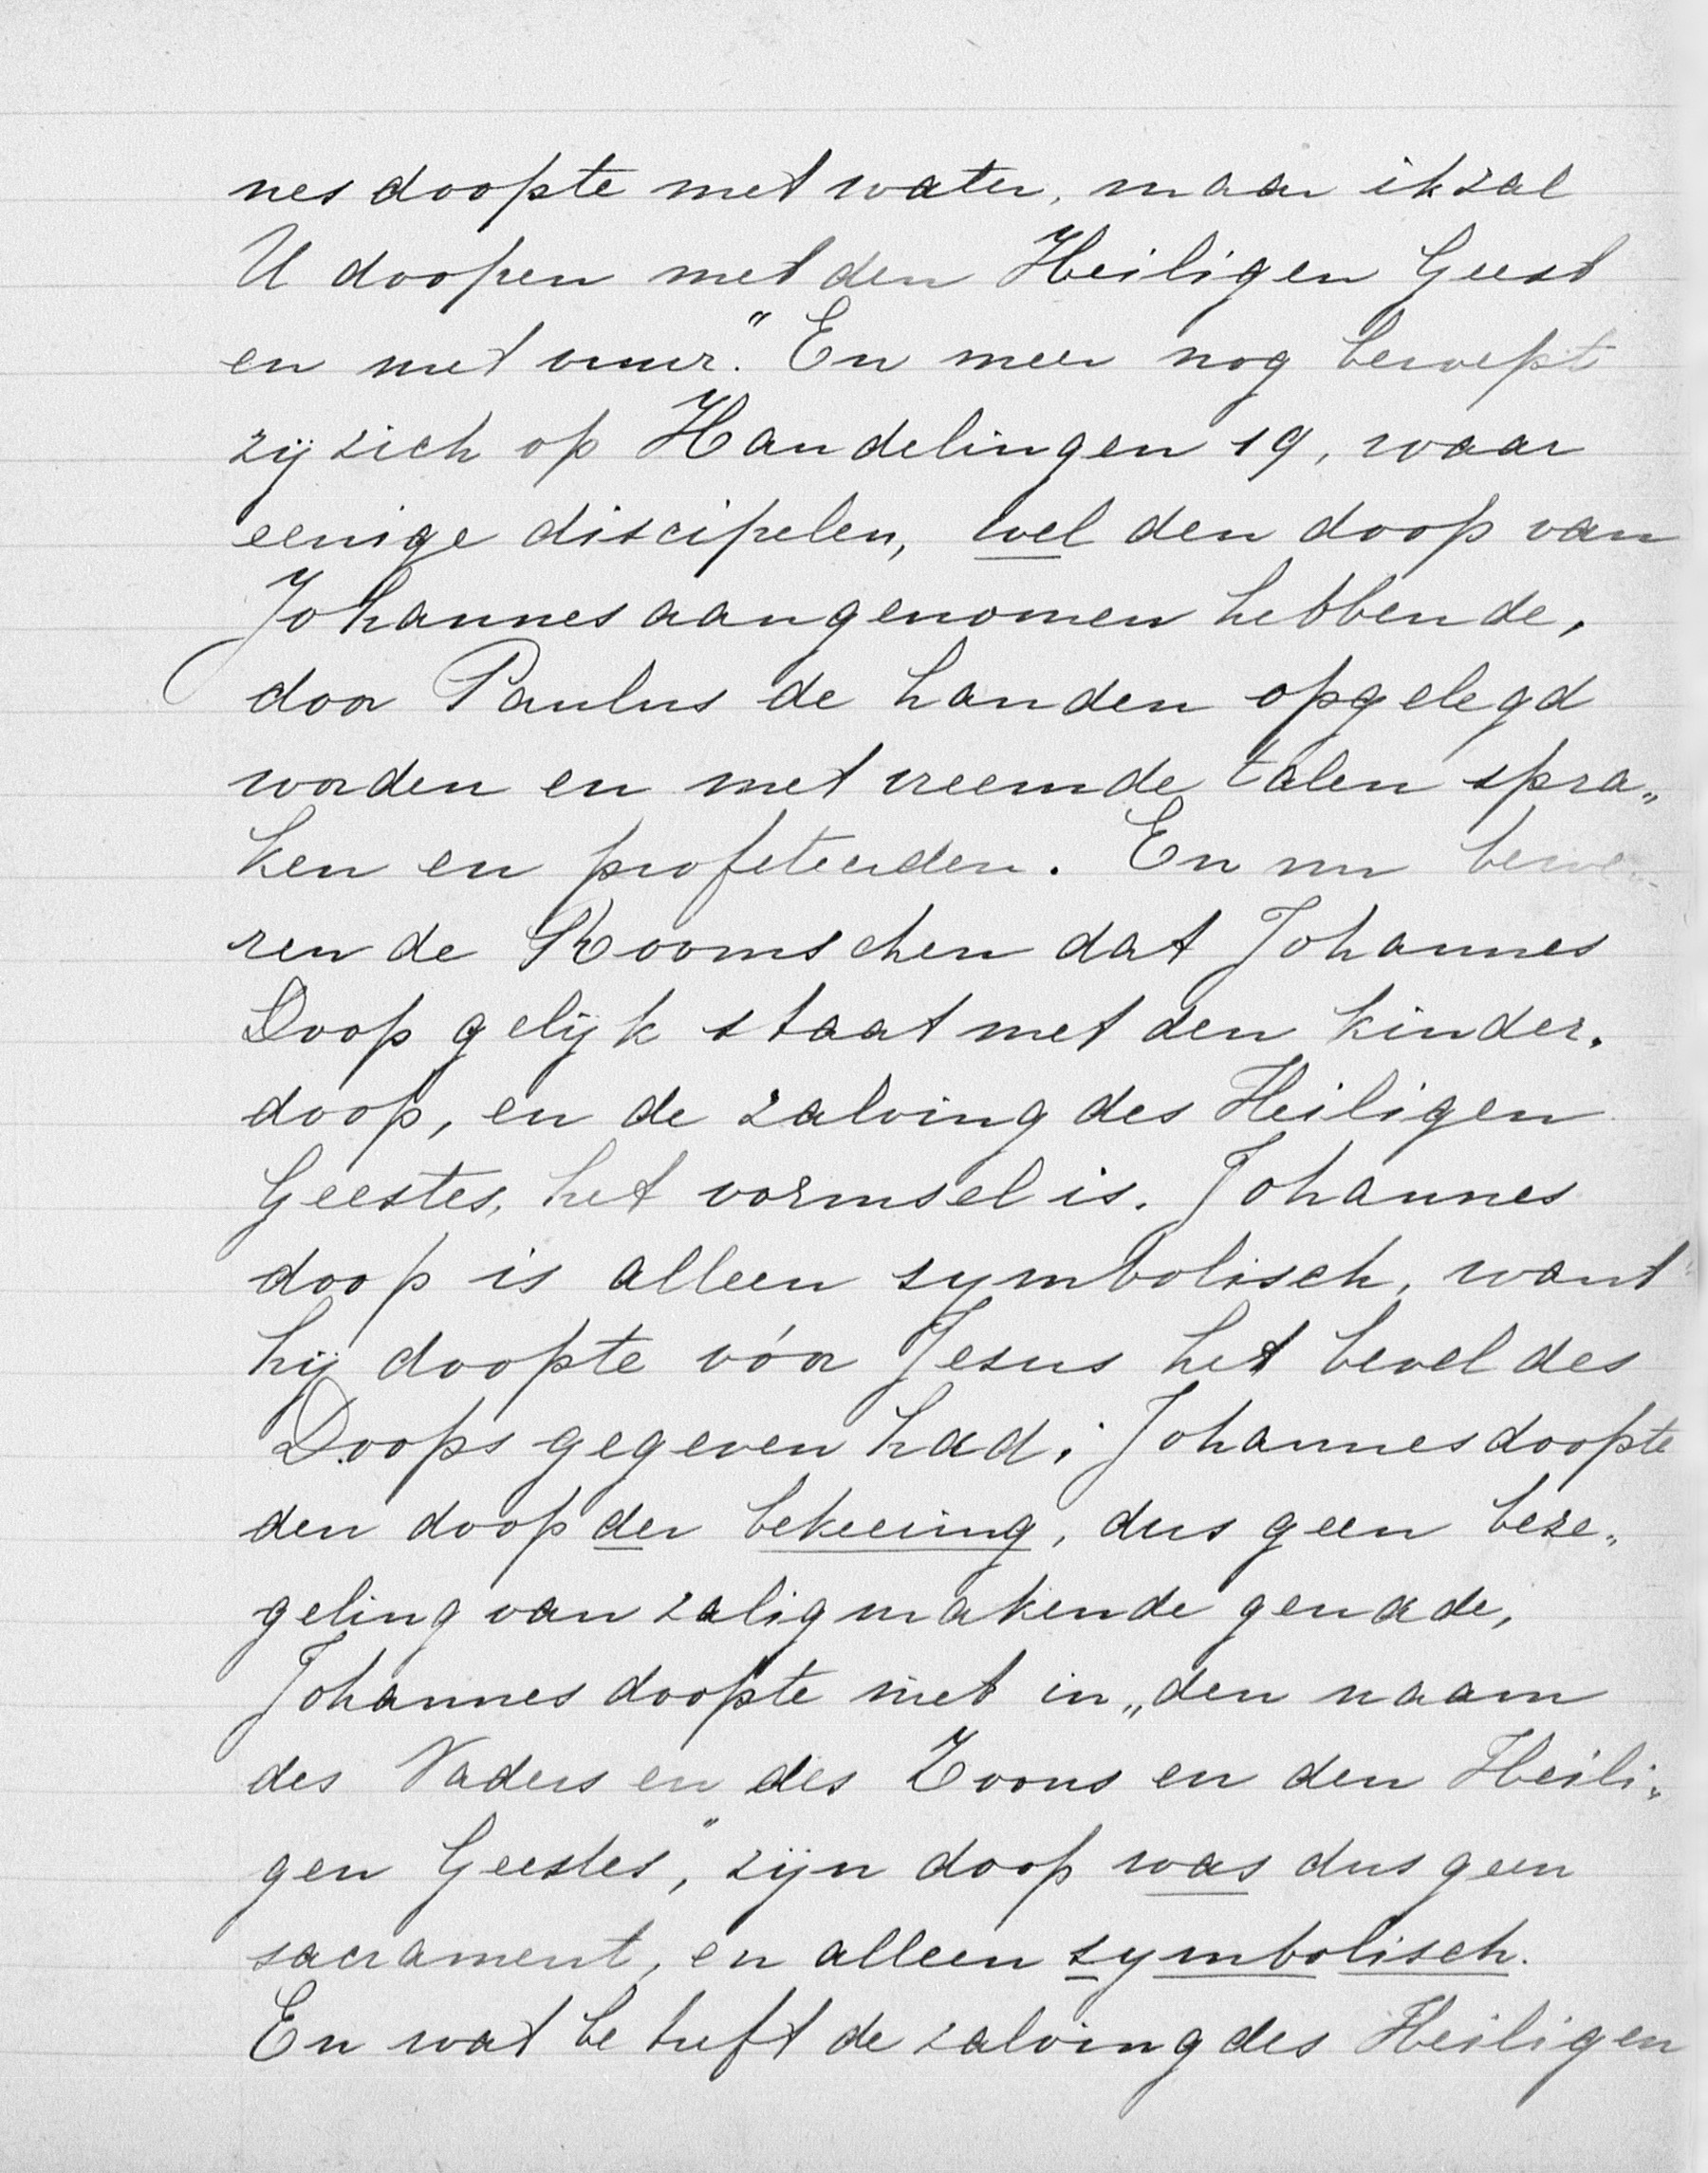 nes doopte met water, maar ik zal
U doopen met den Heiligen Geest
en met vuur." En meer nog beroept
zij zich op Handelingen 19, waar
eenige discipelen, wel den doop van
Johannes aangenomen hebbende,
door Paulus de handen opgelegd
worden en met vreemde talen spra„
ken en profeteerden. En nu bewe„
ren de Roomschen dat Johannes
Doop gelijk staat met den kinder„
doop, en de zalving des Heiligen
Geestes, het vormsel is. Johannes
doop is alleen symbolisch, want
hij doopte vóor Jesus het bevel des
Doops gegeven had; Johannes doopte
den doop der bekeering, dus geen beze„
geling van zaligmakende genade,
Johannes doopte niet in „den naam
des Vaders en des Zoons en den Heili„
gen Geestes", zijn doop was dus geen
sacrament, en alleen symbolisch.
En wat betreft de zalving des Heiligen